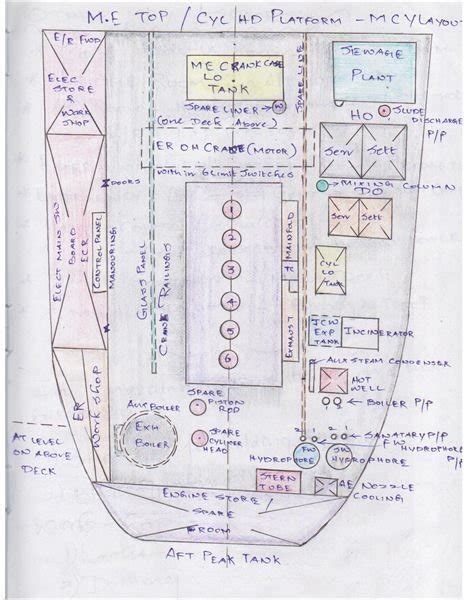 M.E TOP / CYL HD PLATFORM - M/C LAYOUT
E/R FWD
ELEC STORE & WORK SHOP
ME CRANK CASE LO TANK
SPARE LINER
(one Deck Above)
SPARE LINE
SEWAGE PLANT
SLUDGE DISCHARGE P/P
HO
Serv
Sett
ER OH CRANE (MOTOR)
within 6 Limit Switches
MIXING COLUMN
DO
Serv
Sett
DOORS
ELECT MAIN SW BOARD ECR
CONTROL PANEL
MANOURINGS
GLASS PANEL
CRANK RAILINGS
1
2
3
4
5
6
MAINFOLD
EXHAUST
CYL LO TANK
JCW EXP TANK
INCINERATOR
AUX STEAM CONDENSER
HOT WELL
BOILER P/P
ER WORK SHOP
AT LEVEL ON ABOVE DECK
AUX BOILER
EXH BOILER
SPARE PISTON ROD
SPARE CYLINDER HEAD
SANATARY P/P
FW HYDROPHORE P/P
FW HYDROPHORE
SW HYDROPHORE
STERN TUBE
AE NOZZLE COOLING
ENGINE STORE / SPARE ROOM
AFT PEAK TANK